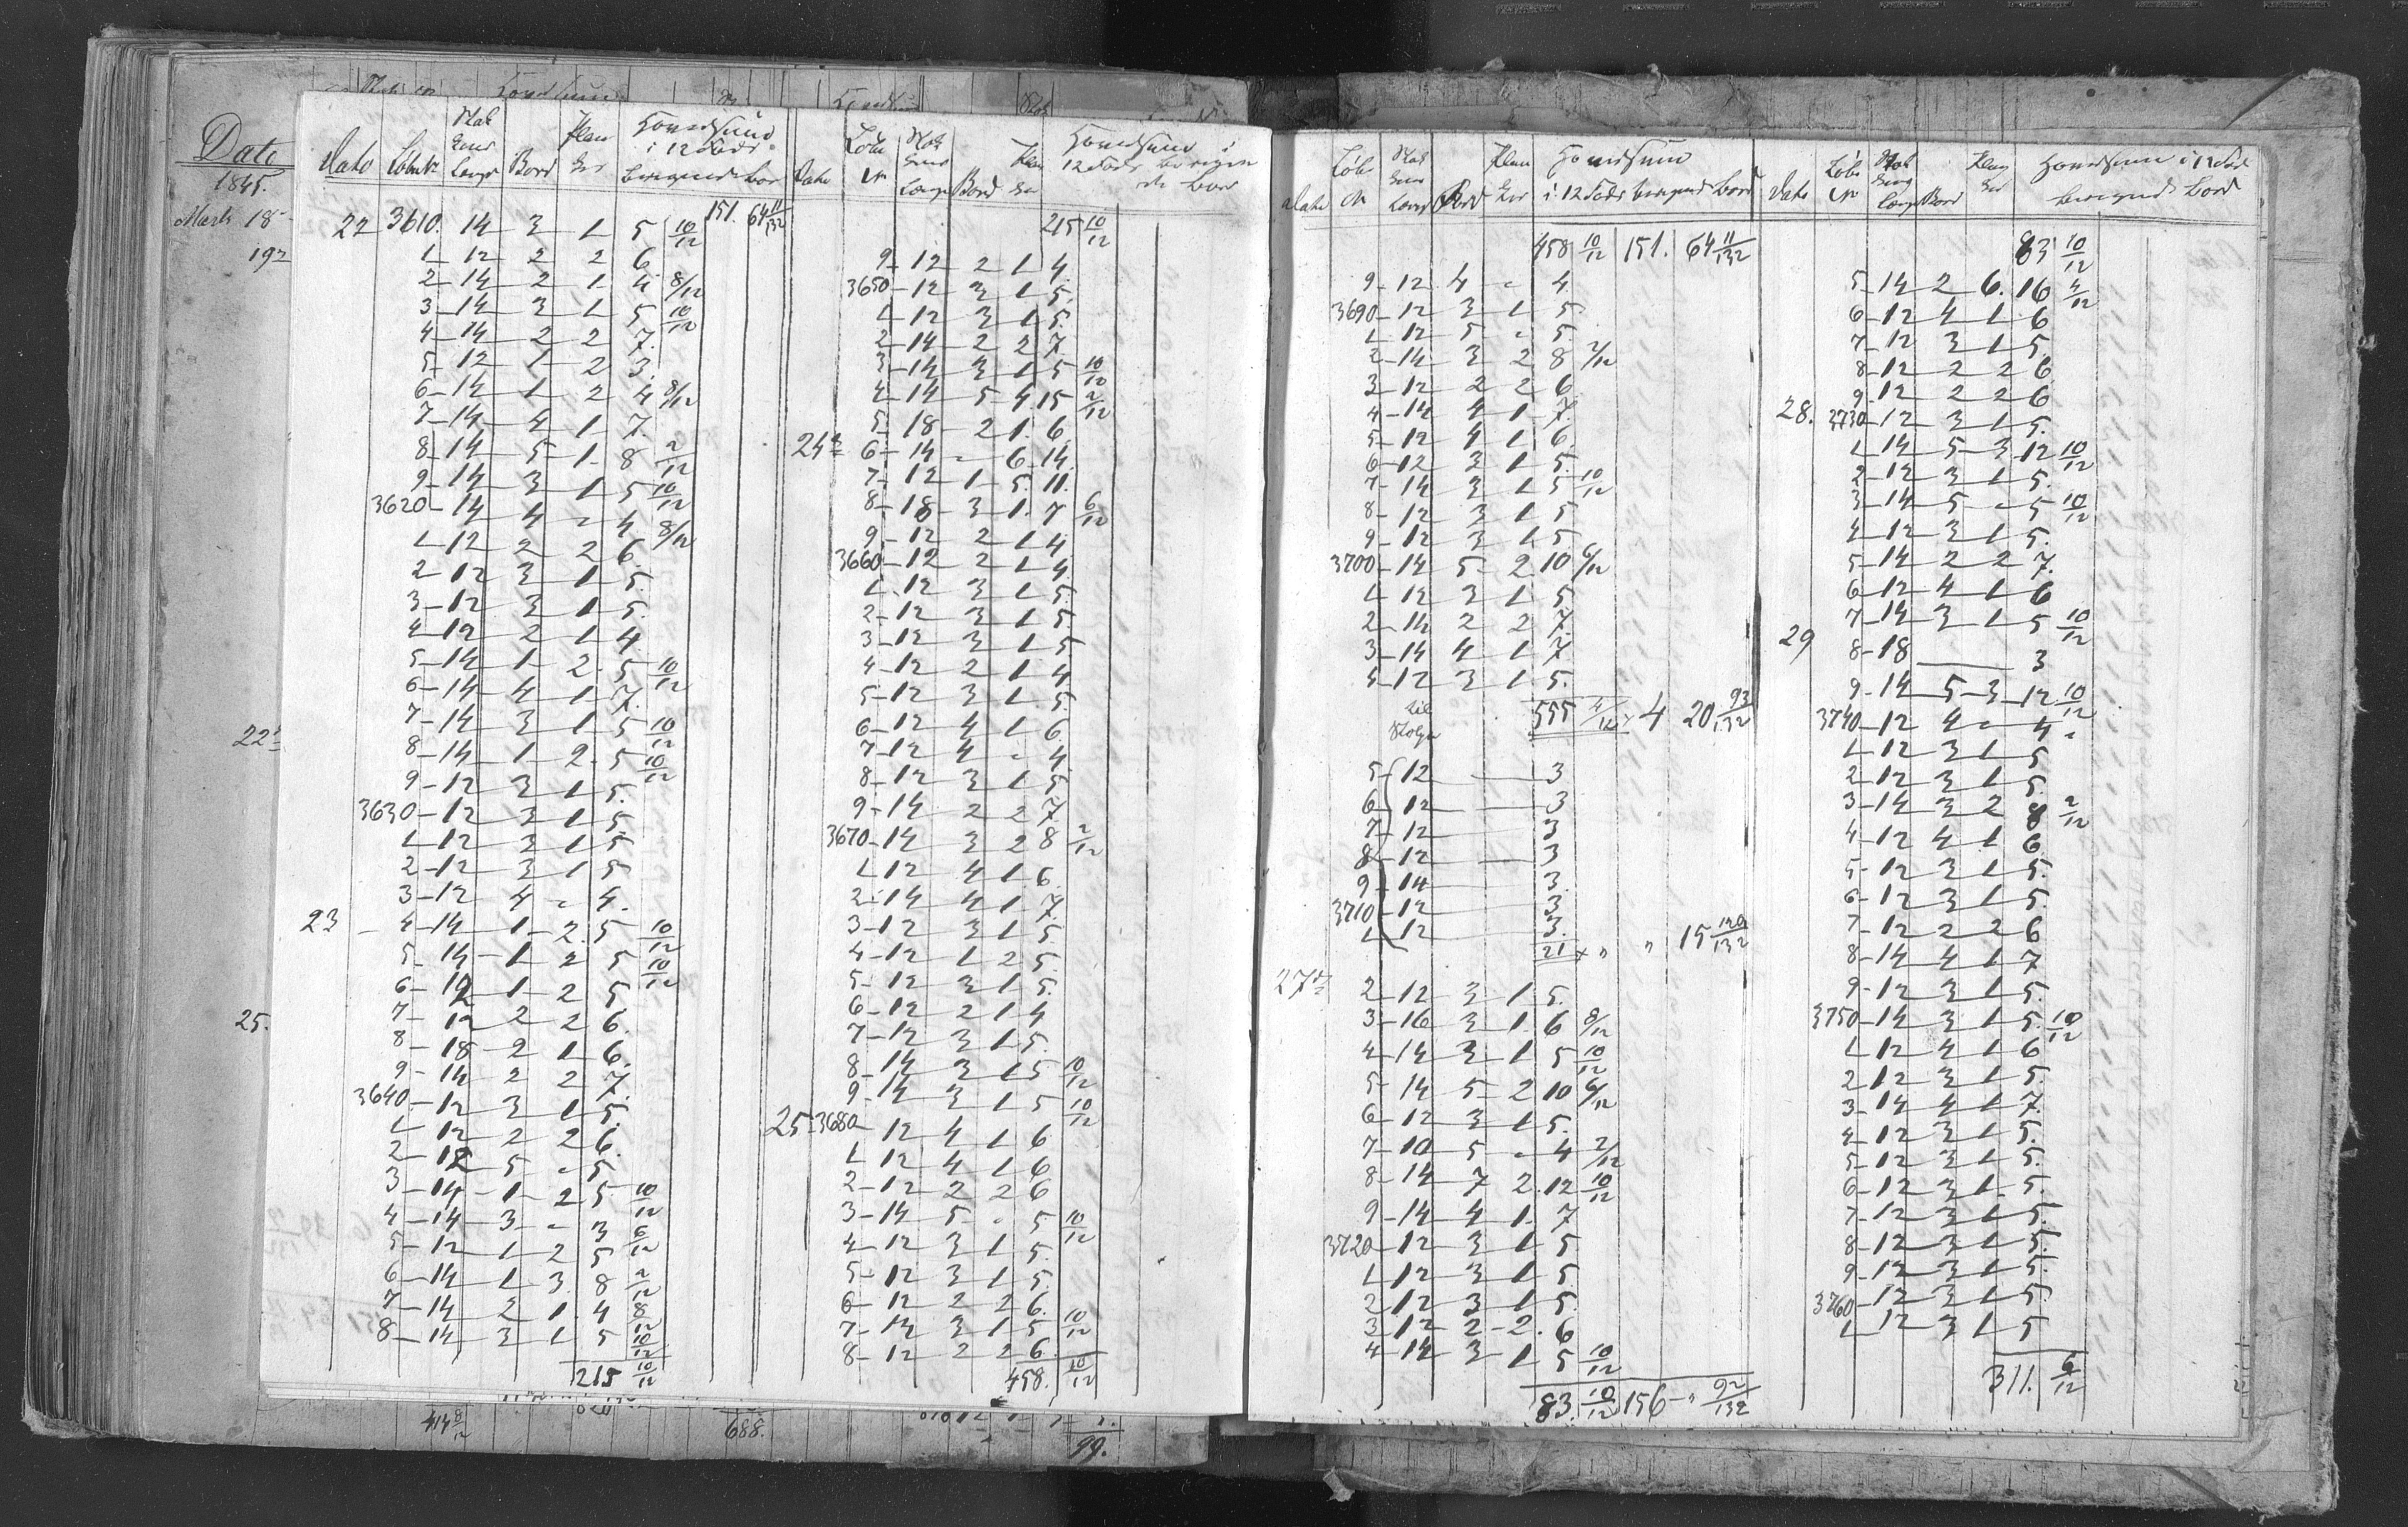 Date
1845.
Marts 18
19
22
25.
Dato Løbe Nr Stok kens Længe Bord Plan ker Hovedsum i 12 Fods beregnede Bor
151. 64 11/132
22 3610. 14 3 1 5 10/12
1 12 2 2 6
2 14 2 1 4 8/12
3 14 3 1 5 10/12
4 14 2 2 7.
5 12 1 2 3.
6 14 1 2 4 8/12
7 14 4 1 7.
8 14 5 1 8 2/12
9 14 3 1 5 10/12
3620 14 4 " 4 8/12
1 12 2 2 6.
2 12 3 1 5.
3 12 3 1 5.
4 12 2 1 4
5 14 1 2 5 10/12
6 14 4 1 7.
7 14 3 1 5 10/12
8 14 1 2 5 10/12
9 12 3 1 5.
3630 12 3 1 5
1 12 3 1 5
2 12 3 1 5
3 12 4 " 4.
23 4 14 1 2 5 10/12
5 14 1 2 5 10/12
6 12 1 2 5
7 12 2 2 6.
8 18 2 1 6.
9 14 2 2 7.
3640 12 3 1 5.
1 12 2 2 6.
2 12 5 " 5.
3 14 1 2 5 10/12
4 14 3 " 3 6/12
5 12 1 2 5
6 14 1 3 8 2/12
7 14 2 1 4 8/12
8 14 3 1 5 10/12
215 10/12
414 8/12
688.
Dato Løbe Nr Stok kens Længe Bord Plan ker Hovedsum i 12 Fods beregne de Bor
215 10/12
9 12 2 1 4
3650 12 3 1 5.
1 12 3 1 5.
2 14 2 2 7
3 14 3 1 5 10/12
4 14 5 4 15 2/12
5 18 2 1 6.
24 6 14 " 6 14
7 12 1 5 11.
8 18 3 1 7 6/12
9 12 2 1 4
3660 12 2 1 4
1 12 3 1 5.
2 12 3 1 5
3 12 3 1 5
4 12 2 1 4
5 12 3 1 5
6 12 4 1 6
7 12 4 " 4
8 12 3 1 5
9 14 2 2 7
3670 14 3 2 8 2/12
1 12 4 1 6
2 14 4 1 7.
3 12 3 1 5.
4 12 1 2 5.
5 12 3 1 5.
6 12 2 1 4
7 12 3 1 5.
8 14 3 1 5 10/12
9 14 3 1 5 10/12
25 3680 12 4 1 6
1 12 4 1 6
2 12 2 2 6
3 14 5 " 5 10/12
4 12 3 1 5.
5 12 3 1 5.
6 12 2 2 6.
7 14 3 1 5 10/12
8 12 2 2 6
458. 10/12
99.
Dato Løbe Nr Stok kens Længd Bord Plan ker Hovedsum i 12 Fods beregned Bord
458 10/12 151. 64 11/132
9 12 4 " 4
3690 12 3 1 5
1 12 5 " 5.
2 14 3 2 8 2/12
3 12 2 2 6
4 14 4 1 7.
5 12 4 1 6.
6 12 3 1 5.
7 14 3 1 5 10/12
8 12 3 1 5
9 12 3 1 5
3700 14 5 2 10 6/12
1 12 3 1 5
2 14 2 2 7.
3 14 4 1 7
4 12 3 1 5.
til
555 4/12 4 20 93/132
5 12 3
6 12 3
7 12 3
8 12 3
9 14 3.
3710 12 3
1 12 3.
21 " " 15 120/132
27 2 12 3 1 5.
3 16 3 1 6 8/12
4 14 3 1 5 10/12
5 14 5 2 10 6/12
6 12 3 1 5.
7 10 5 " 4 2/12
8 14 7 2 12 10/12
9 14 4 1 7
3720 12 3 1 5
1 12 3 1 5.
2 12 3 1 5.
3 12 2 2 6
4 14 3 1 5 10/12
83. 10/12 156 " 92/132
Dato Løbe Nr Stok kens Længe Bord Plan ker Hovedsum i 12 Fod beregned Bord
83 10/12
5 14 2 6. 16 4/12
6 12 4 1 6
7 12 3 1 5.
8 12 2 2 6
9 12 2 2 6
28. 3730 12 3 1 5.
1 14 5 3 12 10/12
2 12 3 1 5.
3 14 5 " 5 10/12
4 12 3 1 5.
5 14 2 2 7.
6 12 4 1 6
7 14 3 1 5 10/12
29 8 18 3
9 14 5 3 12 10/12
3740 12 4 " 4 "
1 12 3 1 5
2 12 3 1 5.
3 14 3 2 8 2/12
4 12 4 1 6
5 12 3 1 5.
6 12 3 1 5.
7 12 2 2 6
8 14 4 1 7
9 12 3 1 5.
3750 14 3 1 5. 10/12
1 12 4 1 6
2 12 3 1 5.
3 14 4 1 7.
4 12 3 1 5.
5 12 3 1 5.
6 12 3 1 5.
7 12 3 1 5.
8 12 3 1 5.
9 12 3 1 5.
3760 12 3 1 5
1 12 3 1 5
311. 6/12